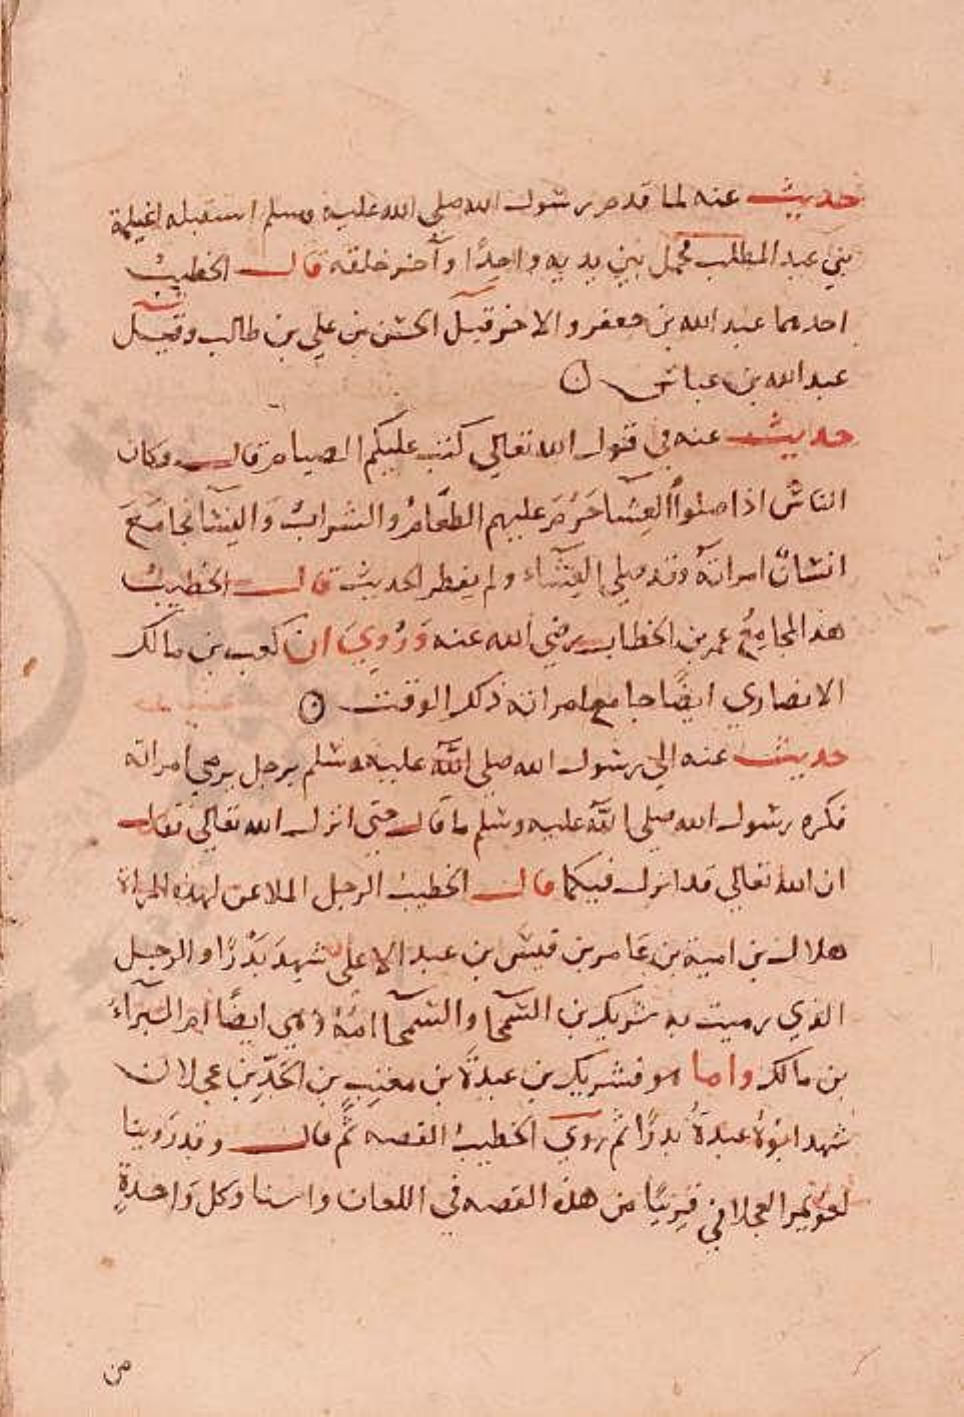 حديث عنه لما قدم رسول الله صلى الله عليه وسلم استقبله اغيلمة
بني عبد المطلب فحمل بين يديه واحدًا وآخر خلفه قال الخطيب
احدهما عبد الله بن جعفر والاخر قيل الحسن بن علي بن طالب وقيل
عبد الله بن عباس
حديث عنه في قول الله تعالي كتب عليكم الصيام قال وكان
الناس اذا صلوا العشا حَرُمَ عليهم الطعامُ والشرابُ والنسَآ فجامَعَ
انسَانٌ امراتهُ وقد صلى العِشَآء ولم يفطر الحديث قال الخطيبُ
هذا المجامِعُ عمر بن الخطاب رضي الله عنه وَرُوِيَ ان كعب بن مالك
الانصاري ايضًا جامع امراته ذلك الوقت
حديث عنه اتي رسول الله صلى الله عليه وسلم برجل رمي امراته
فكره رسول الله صلى الله عليه وسلم ما قال حتى انزل الله تعالي فقال
ان الله تعالي قد انزل فيكما قال الخطيب الرجل الملاعن لهذه المراة
هلال بن امية بن عَامر بن قيس بن عبد الاعلى شهدَ بَدْرًا والرجل
الذي رميت به شريك بن السَّحمآ والسَّحمآ امّهُ وَهي ايضًا ام البَرآء
بن مالك واما هو فشريك بن عبدةَ بن مغيث بن الجَدِّ بن عجلان
شهد ابوهُ عبدَةُ بدرًا ثم روي الخطيبُ القصه ثُم قال وقد رَوينا
لعويمر العجلاني قريبًا من هذه القصه في اللعان واسنا وكل وَاحدةٍ
من